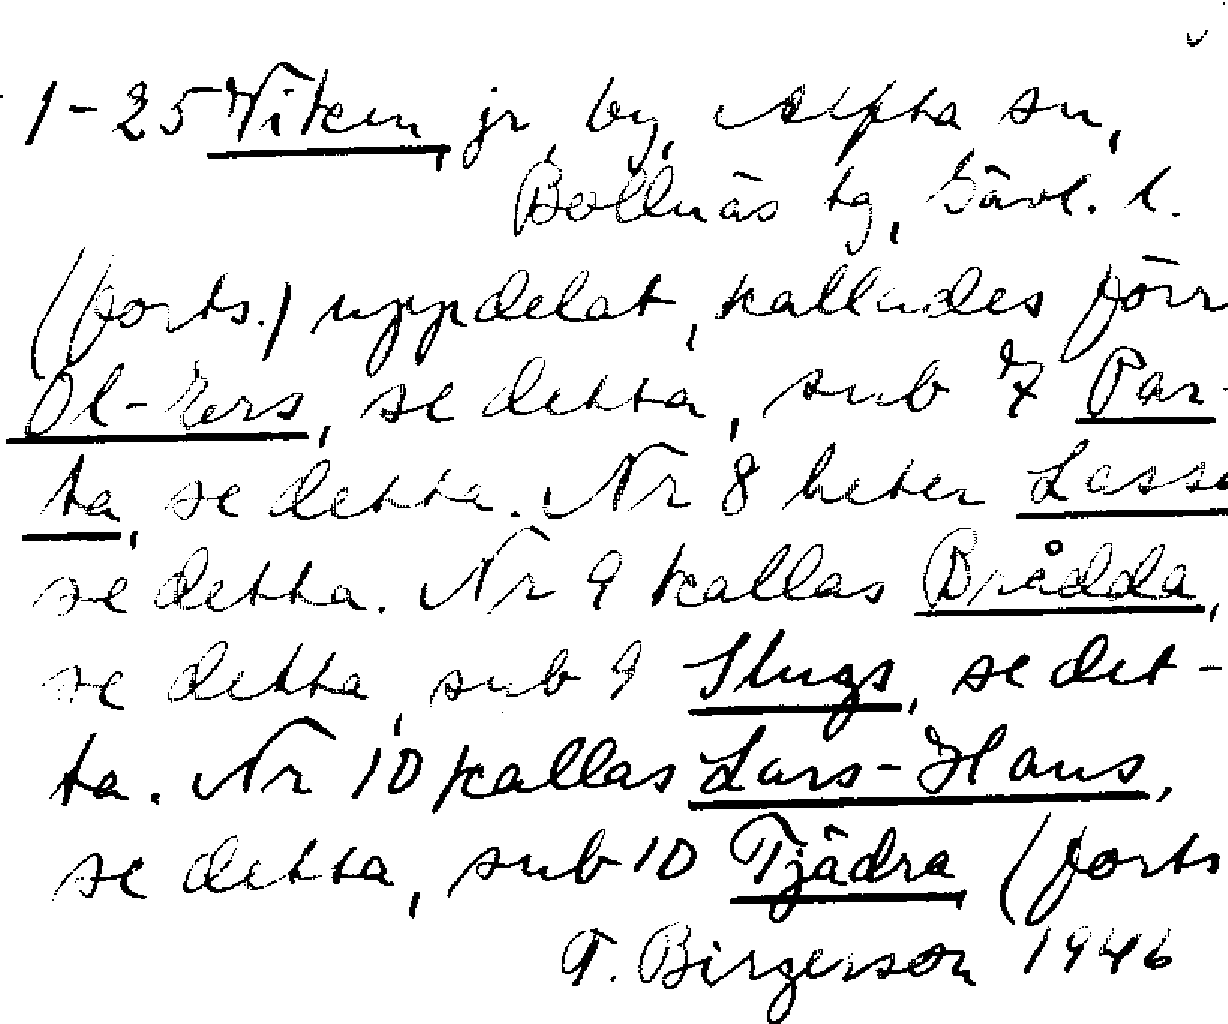 1-25 Viken, jr, by, Alfta sn,
Bollnäs tg, Gävl. l.
(forts.) uppdelat, kallades förr
Ol-Ers, se detta, sub 7 Par-
ta, se detta. Nr 8 heter Lasse
se detta. Nr 9 kallas Brådda,
se detta, sub 9 Slugs, se det-
ta. Nr 10 kallas Lars-Hans,
se detta, sub 10 Tjädra (forts
T. Birgerson 1946